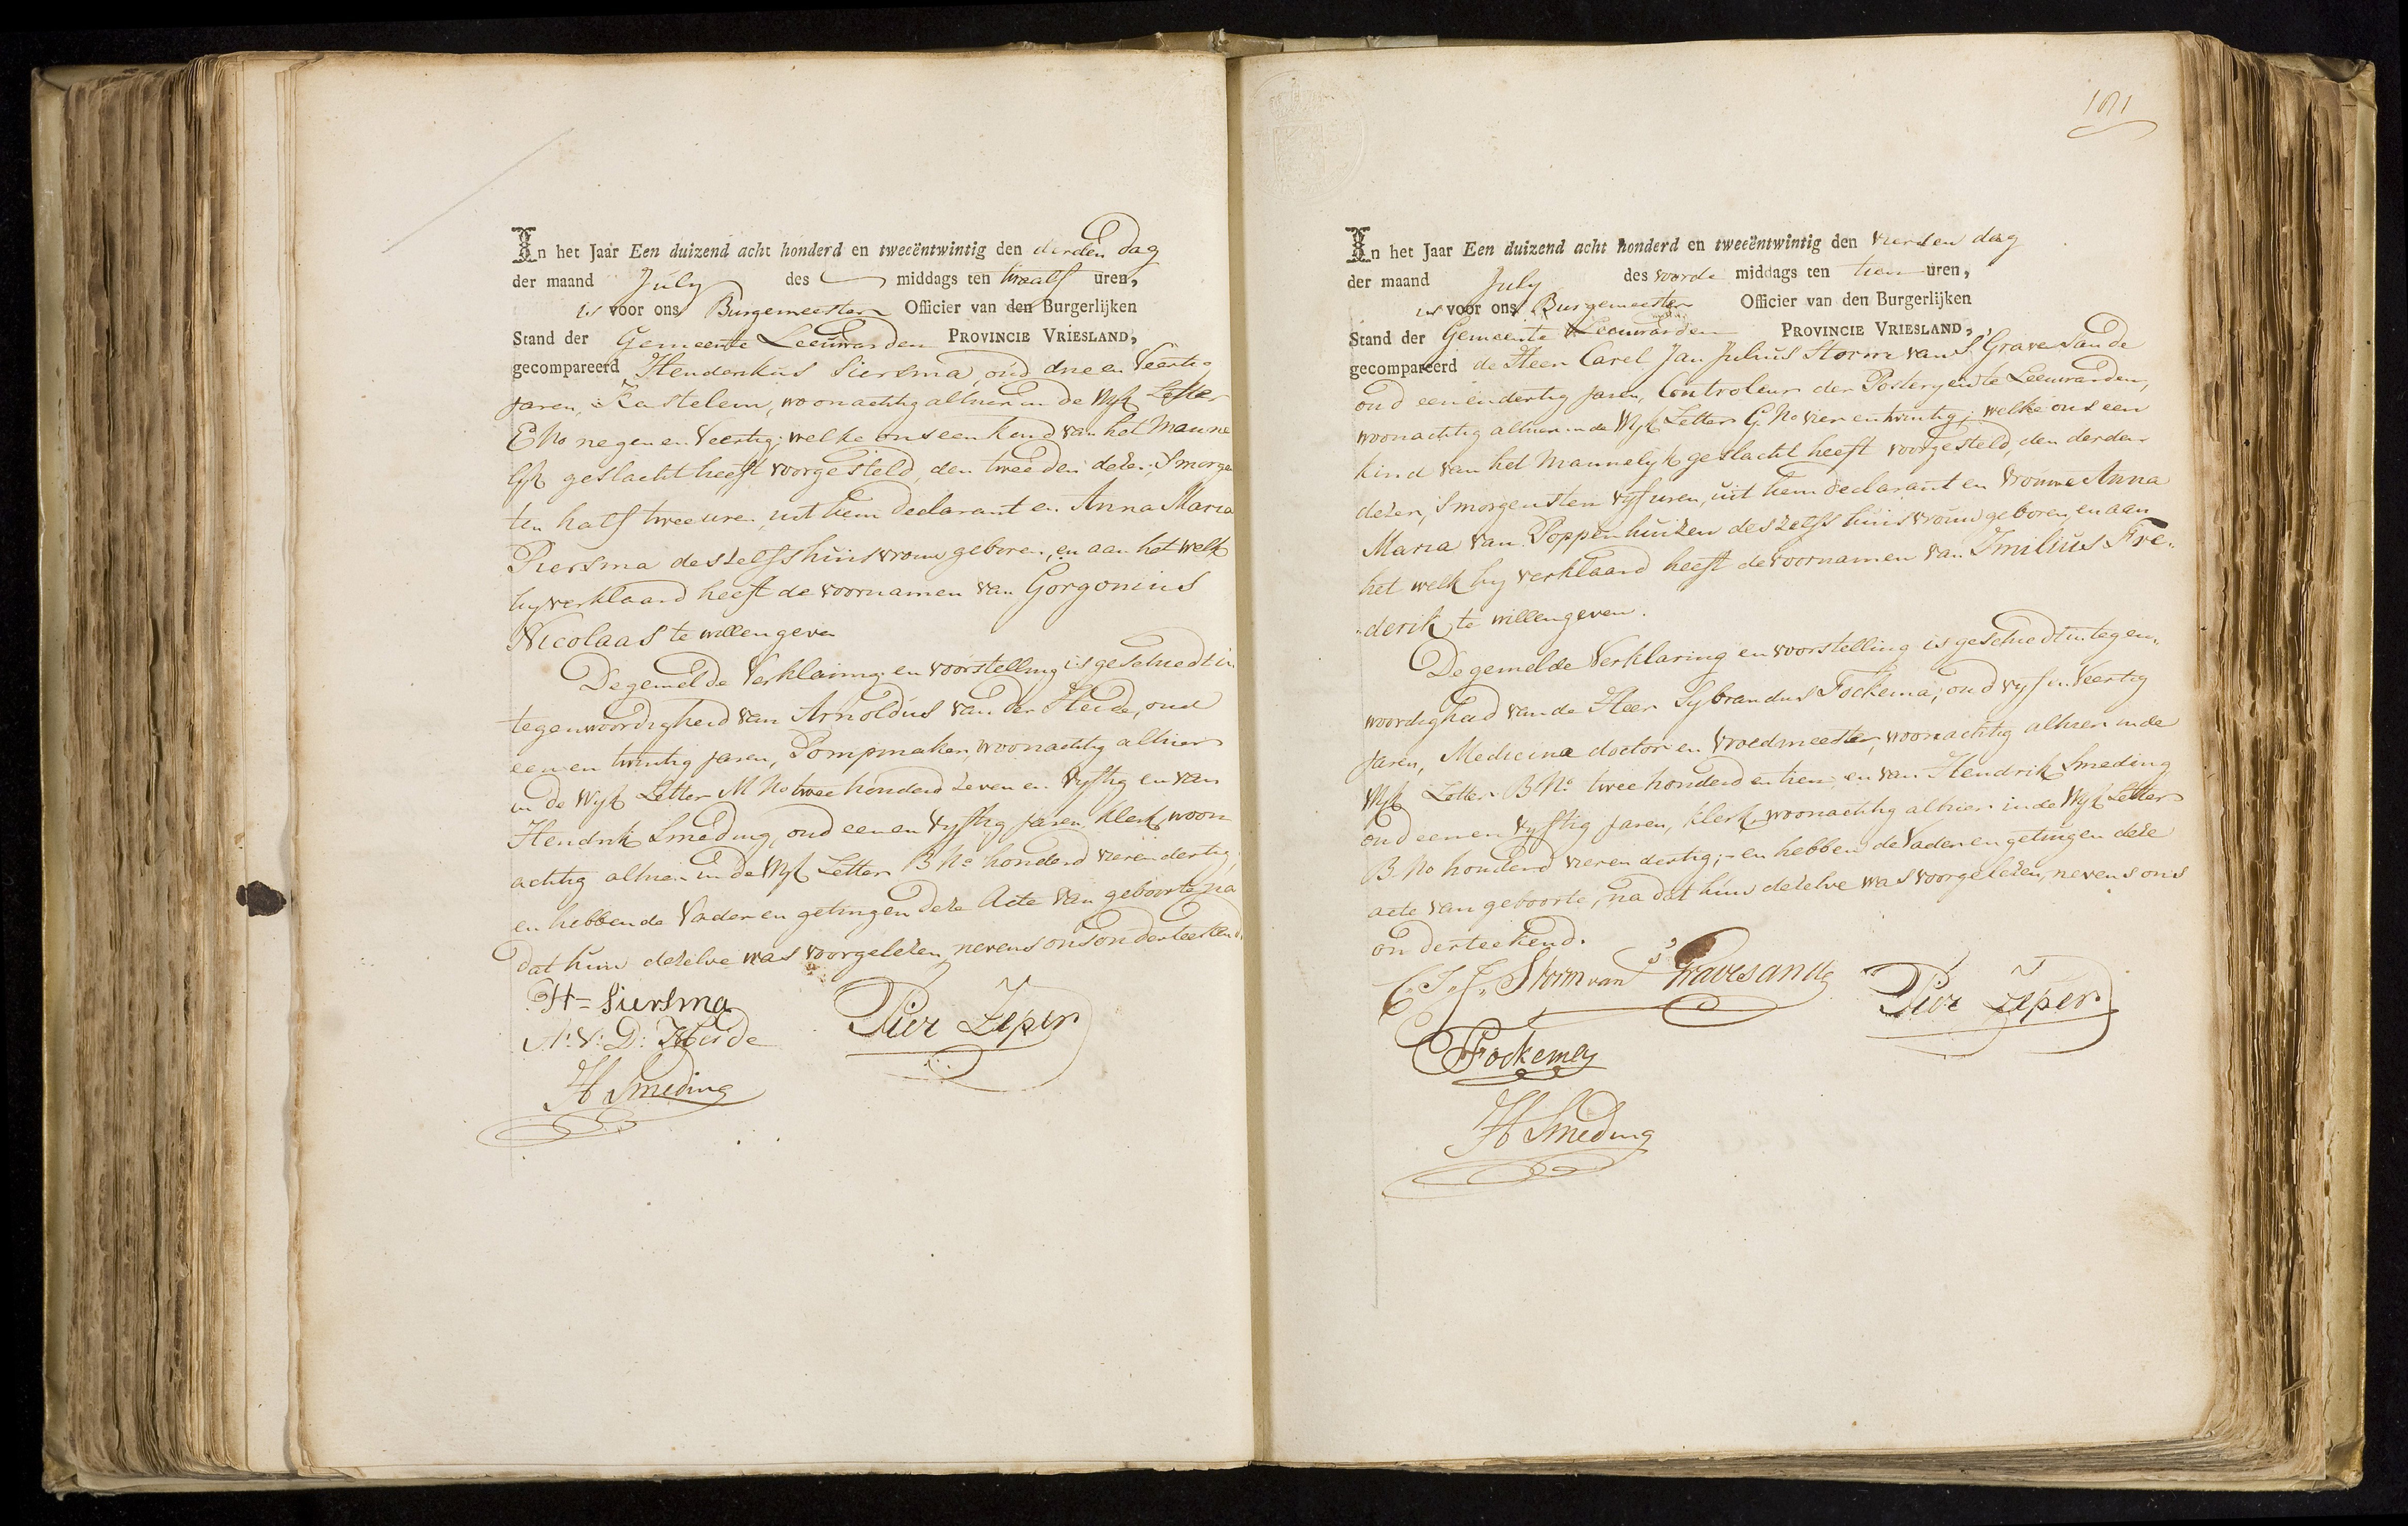 In het Jaar Een duizend acht honderd en tweeëntwintig den derden dag
der maand July des middags ten twaalf uren,
is voor ons Burgemeester Officier van den Burgerlijken
Stand der Gemeente Leeuwarden PROVINCIE VRIESLAND,
gecompareerd Henderikus Siersma, oud drie en Veertig
Jaren, Kastelein, woonachtig alhier in de Wyk Letter
E No negen en Veertig; welke ons een kind van het Manne
lyk geslacht heeft voorgesteld, den tweeden dezer, Smorgen
ten half twee uren, uit hem declarant en Anna Maria
Piersma deszelfs huisvrouw geboren, en aan het welk
hy verklaard heeft de voornamen van Gorgonius
Nicolaas te willen geven
De gemelde Verklaring en voorstelling is geschiedt in
tegenwoordigheid van Arnoldus van der Heide, oud
een en twintig jaren, Pompmaker, woonachtig alhier
in de Wyk Letter M No twee honderd zeven en Vyftig en van
Hendrik Smeding, oud een en Vyftig Jaren, klerk, woon
achtig alhier in de Wyk Letter B No honderd vier en dertig;
en hebben de Vader en getuigen deze Acte van geboorte, na
dat hun dezelve was voorgelezen, nevens ons onderteekend.
H= Siersma
A: V: D: Heide
Pier Zeper
H Smeding
101
In het Jaar Een duizend acht honderd en tweeëntwintig den vierden dag
der maand July des voorde middags ten tien uren,
is voor ons Burgemeester Officier van den Burgerlijken
Stand der Gemeente Leeuwarden PROVINCIE VRIESLAND,
gecompareerd de Heer Carel Jan Julius Storm van S'Gravesande
oud een en dertig jaren, Controleur der Posteryen te Leeuwarden,
woonachtig alhier in de Wyk Letter G. No vier en twintig; welke ons een
kind van het Mannelyk geslacht heeft voorgesteld, den derden
dezer, Smorgens ten vyf uren, uit hem declarant en Vrouwe Anna
Maria van Poppenhuizen deszelfs huisvrouw geboren, en aan
het welk hy verklaard heeft de voornamen van Imilius Fre-
derik te willen geven.
De gemelde Verklaring en voorstelling is geschiedt in tegen-
woordigheid van de Heer Sybrandus Fockema, oud vyf en Veertig
Jaren, Medicina doctor en Vroedmeester, woonachtig alhier in de
Wyk Letter B No. twee honderd en tien, en van Hendrik Smeding
oud een en Vyftig jaren, klerk, woonachtig alhier in de Wyk Letter
B. No honderd vier en dertig; - en hebben de Vader en getuigen deze
acte van geboorte, na dat hun dezelve was voorgelezen, nevens ons
onderteekend.
C. J. J. Storm van 's Gravesande
Pier Zeper
Fockema
H Smeding